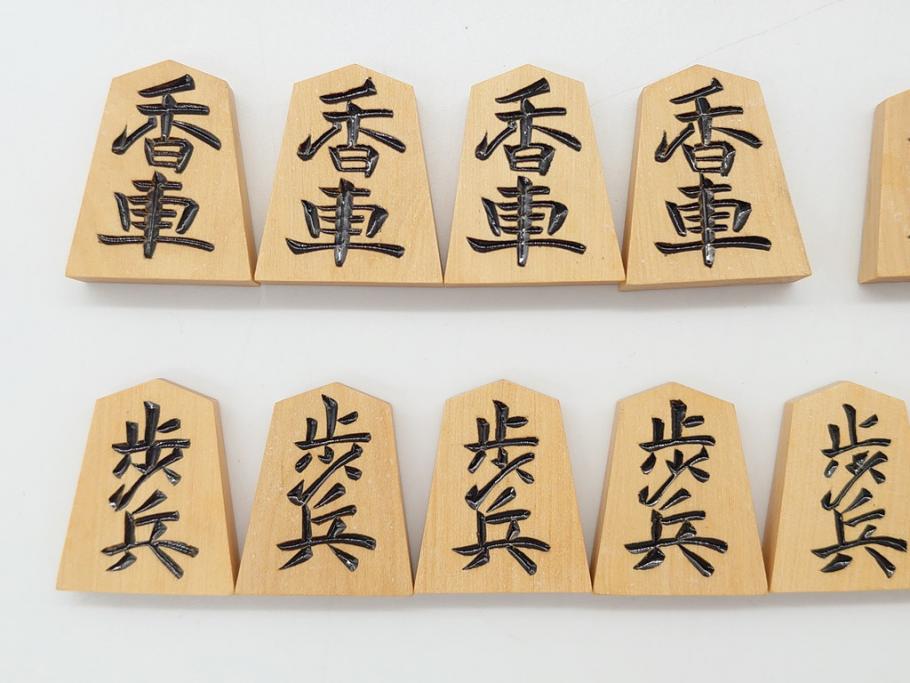 香車 香車 香車 香車
歩兵 歩兵 歩兵 歩兵 歩兵